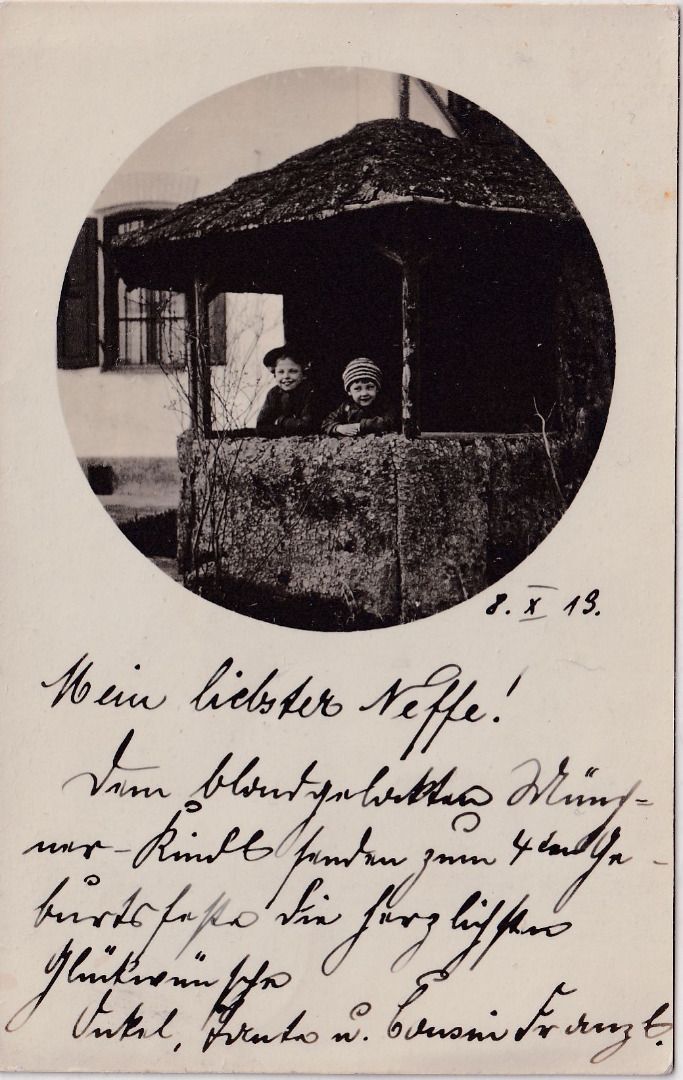 8. X 13.
Mein liebster Neffe!
Dem blondgelockten Münch-
ner-Kindl senden zum 4ten Ge-
burtsfeste die herzlichsten
Glückwünsche
Onkel, Tante u. Cousin Franzl.